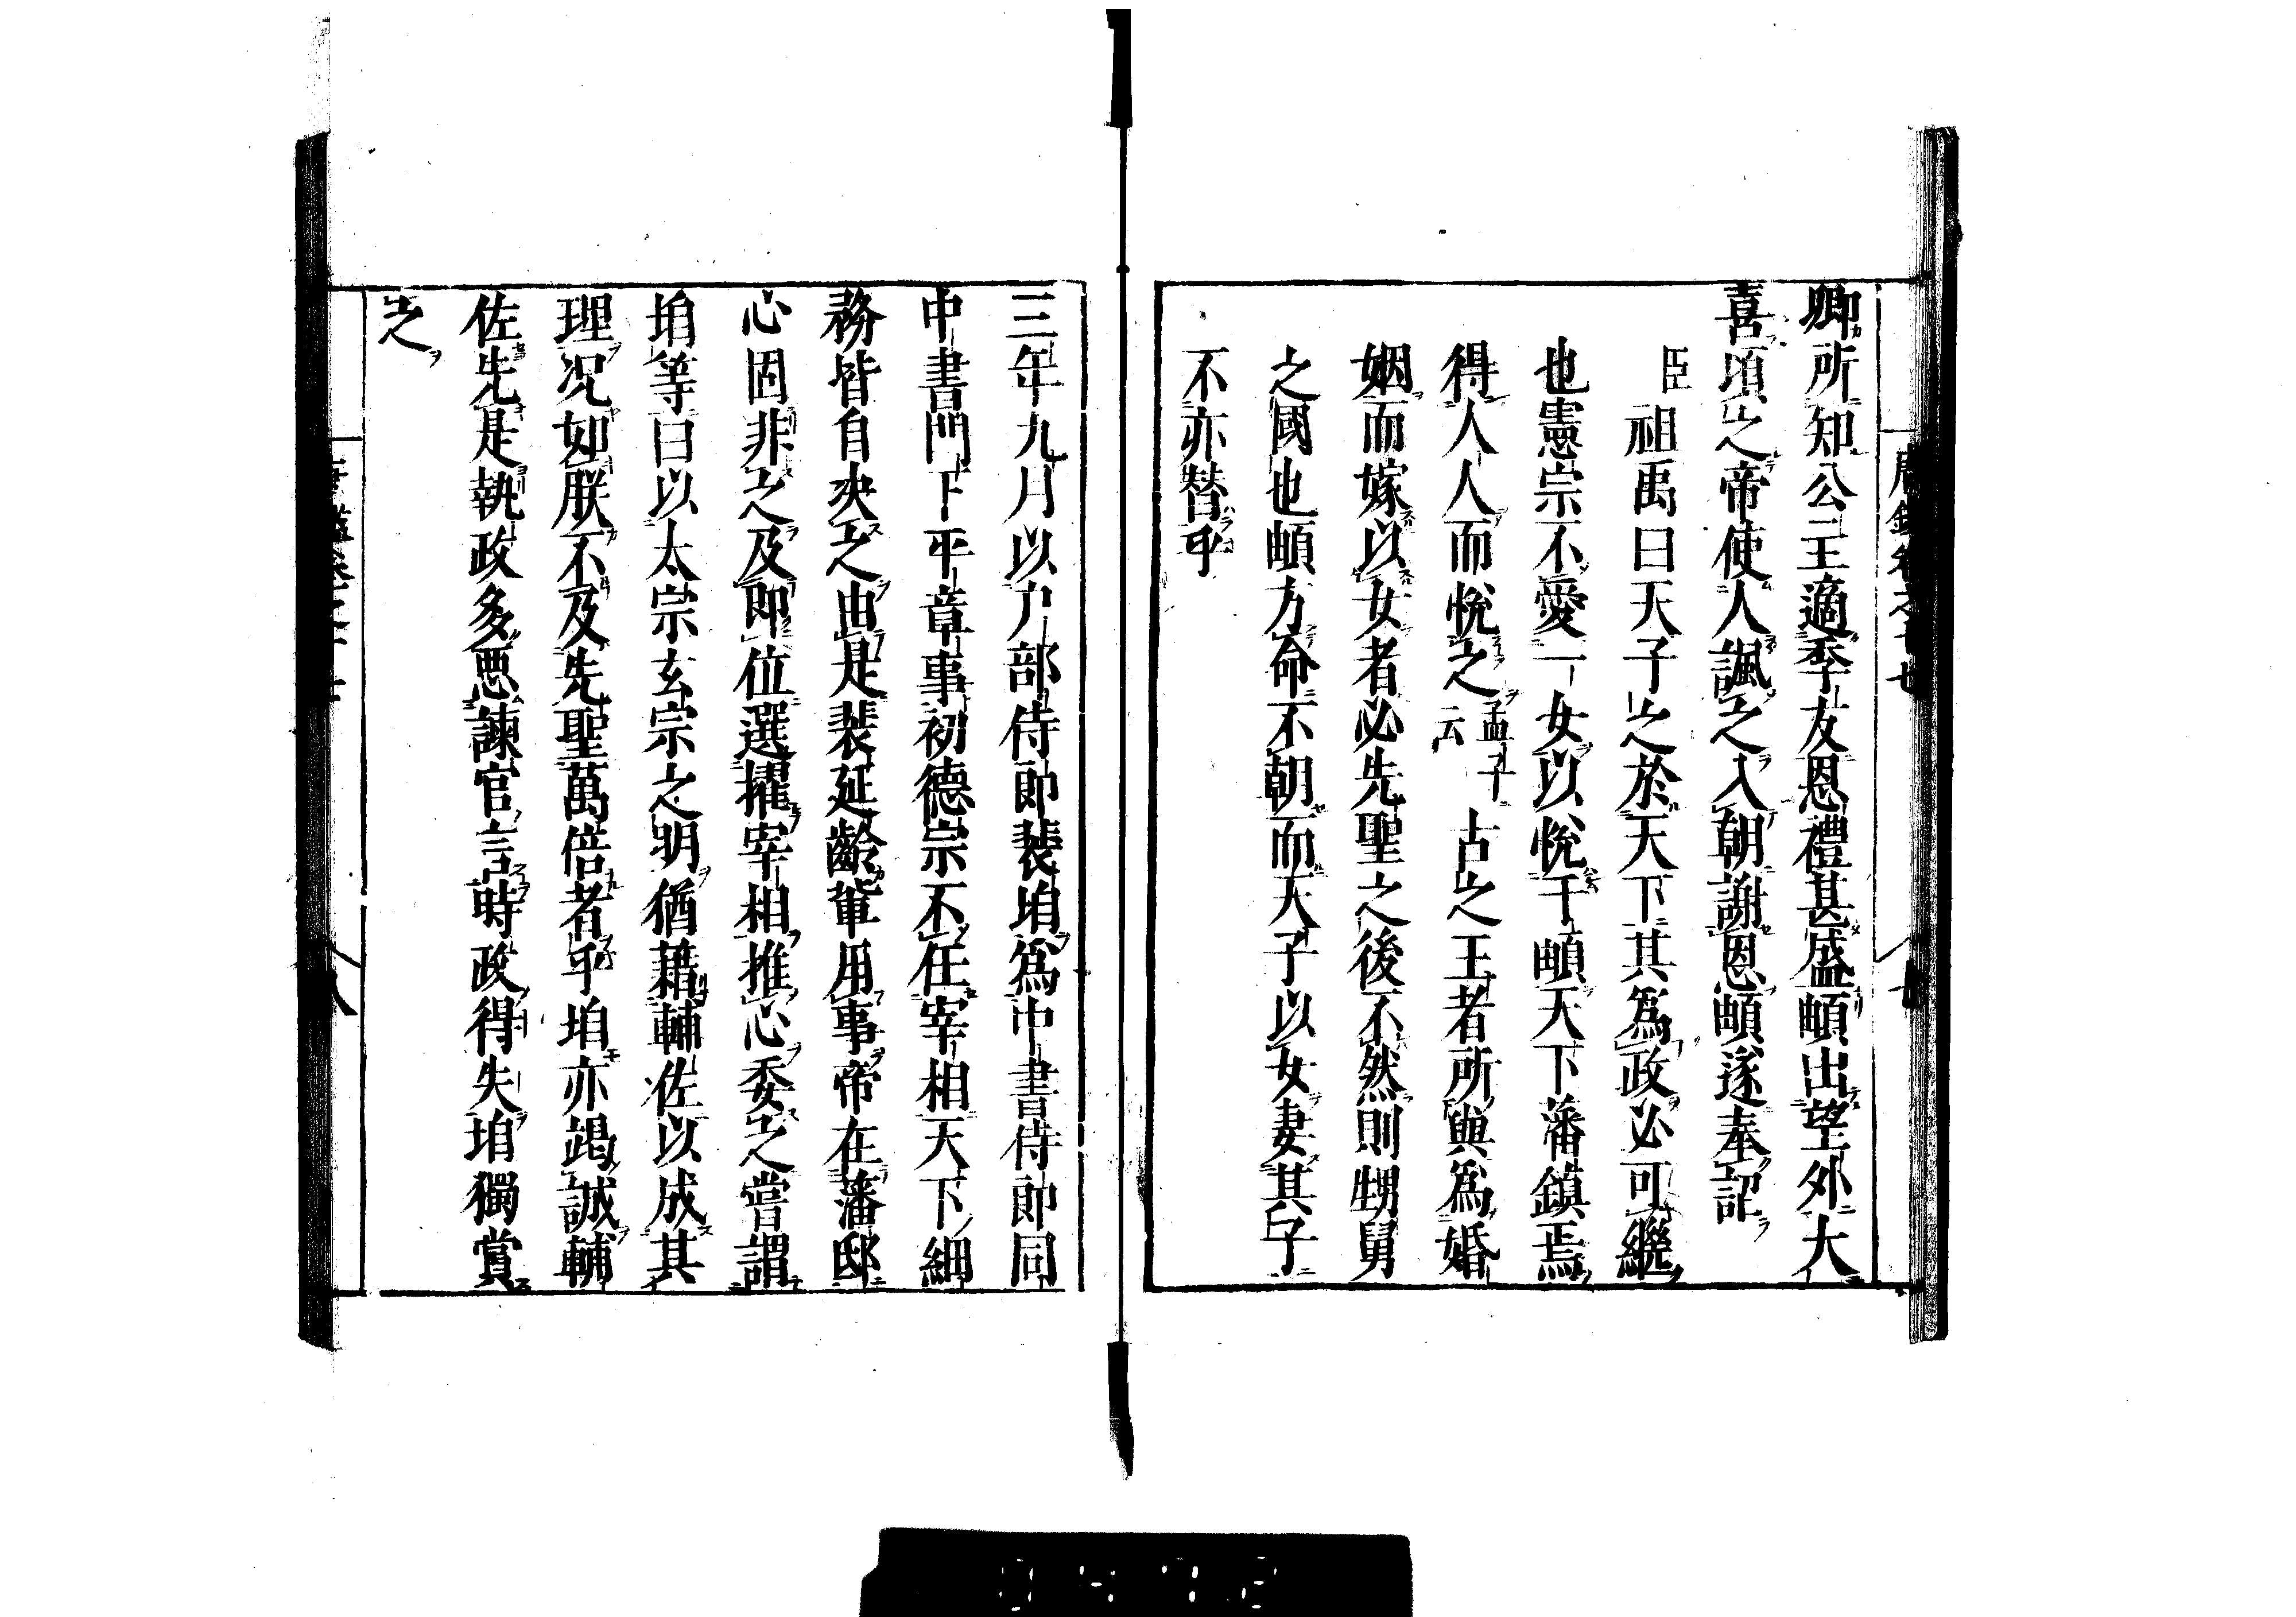 卿所知公主適季友恩禮甚盛頔出望外大
喜頃之帝使人諷之入朝謝恩頔遂奉詔
臣祖禹曰天子之於天下其爲政必可繼
也憲宗不愛一女以悅于頔天下藩鎮焉
得人人而悅之孟子云古之王者所與爲婚
姻而嫁以女者必先聖之後不然則甥舅
之國也頔方命不朝而天子以女妻其子
不亦替乎
三年九月以戶部侍郎裴垍爲中書侍郎同
中書門下平章事初德宗不任宰相天下細
務皆自决之由是裴延齡軰用事帝在藩邸
心固非之及即位選擢宰相推心委之嘗謂
垍等曰以太宗玄宗之明猶藉輔佐以成其
理况如朕不及先聖萬倍者乎垍亦竭誠輔
佐先是執政多惡諫官言時政得失垍獨賞
之